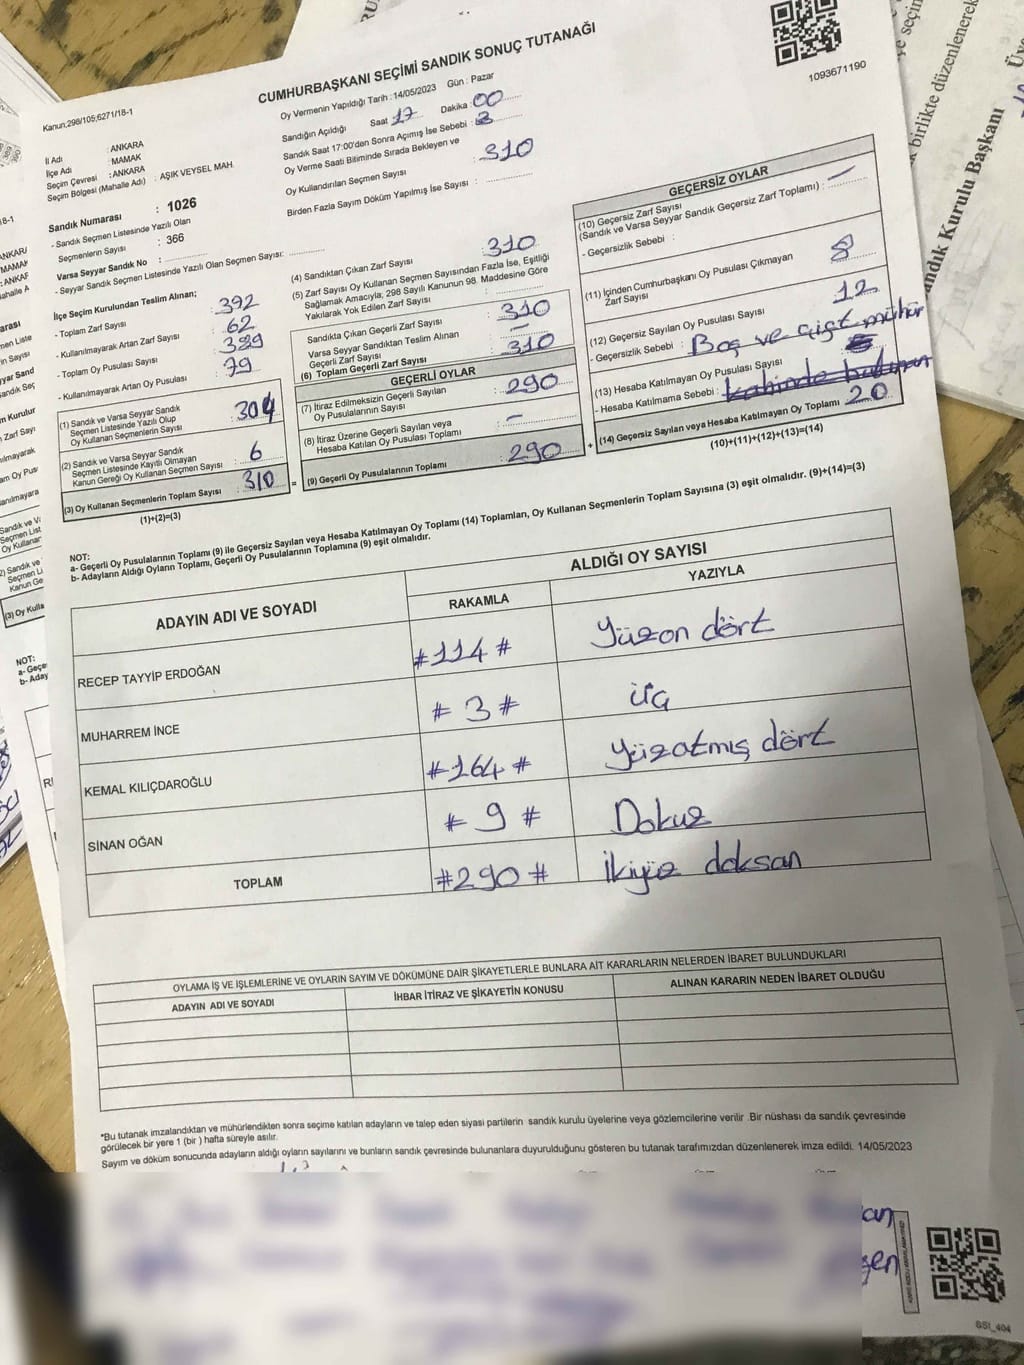 CUMHURBAŞKANI SEÇİMİ SANDIK SONUÇ TUTANAĞI
1093671190
Kanun;298/105;6271/18-1
Oy Vermenin Yapıldığı Tarih : 14/05/2023 Gün : Pazar
Sandığın Açıldığı Saat 17 Dakika : 00
Sandık Saat 17:00'den Sonra Açımış İse Sebebi :
Oy Verme Saati Bitiminde Sırada Bekleyen ve
Oy Kullandırılan Seçmen Sayısı : 310
Birden Fazla Sayım Döküm Yapılmış İse Sayısı :
İl Adı : ANKARA
İlçe Adı : MAMAK
Seçim Çevresi : ANKARA
Seçim Bölgesi (Mahalle Adı) : AŞIK VEYSEL MAH.
Sandık Numarası : 1026
- Sandık Seçmen Listesinde Yazılı Olan
Seçmenlerin Sayısı : 366
Varsa Seyyar Sandık No :
- Seyyar Sandık Seçmen Listesinde Yazılı Olan Seçmen Sayısı:
İlçe Seçim Kurulundan Teslim Alınan;
- Toplam Zarf Sayısı : 392
- Kullanılmayarak Artan Zarf Sayısı : 62
- Toplam Oy Pusulası Sayısı : 389
- Kullanılmayarak Artan Oy Pusulası : 79
(1) Sandık ve Varsa Seyyar Sandık
Seçmen Listesinde Yazılı Olup
Oy Kullanan Seçmenlerin Sayısı : 304
(2) Sandık ve Varsa Seyyar Sandık
Seçmen Listesinde Kayıtlı Olmayan
Kanun Gereği Oy Kullanan Seçmen Sayısı : 6
(3) Oy Kullanan Seçmenlerin Toplam Sayısı : 310
(1)+(2)=(3)
(4) Sandıktan Çıkan Zarf Sayısı : 310
(5) Zarf Sayısı Oy Kullanan Seçmen Sayısından Fazla İse, Eşitliği
Sağlamak Amacıyla; 298 Sayılı Kanunun 98. Maddesine Göre
Yakılarak Yok Edilen Zarf Sayısı :
Sandıkta Çıkan Geçerli Zarf Sayısı : 310
Varsa Seyyar Sandıktan Teslim Alınan
Geçerli Zarf Sayısı : –
(6) Toplam Geçerli Zarf Sayısı : 310
GEÇERLİ OYLAR
(7) İtiraz Edilmeksizin Geçerli Sayılan
Oy Pusulalarının Sayısı : 290
(8) İtiraz Üzerine Geçerli Sayılan veya
Hesaba Katılan Oy Pusulası Toplamı : –
(9) Geçerli Oy Pusulalarının Toplamı : 290
GEÇERSİZ OYLAR
(10) Geçersiz Zarf Sayısı
(Sandık ve Varsa Seyyar Sandık Geçersiz Zarf Toplamı) : –
- Geçersizlik Sebebi :
(11) İçinden Cumhurbaşkanı Oy Pusulası Çıkmayan
Zarf Sayısı : 8
(12) Geçersiz Sayılan Oy Pusulası Sayısı : 12
- Geçersizlik Sebebi : Boş ve çift mühür
(13) Hesaba Katılmayan Oy Pusulası Sayısı :
- Hesaba Katılmama Sebebi :
(14) Geçersiz Sayılan veya Hesaba Katılmayan Oy Toplamı : 20
(10)+(11)+(12)+(13)=(14)
NOT:
a- Geçerli Oy Pusulalarının Toplamı (9) ile Geçersiz Sayılan veya Hesaba Katılmayan Oy Toplamı (14) Toplamları, Oy Kullanan Seçmenlerin Toplam Sayısına (3) eşit olmalıdır. (9)+(14)=(3)
b- Adayların Aldığı Oyların Toplamı, Geçerli Oy Pusulalarının Toplamına (9) eşit olmalıdır.
ADAYIN ADI VE SOYADI ALDIĞI OY SAYISI
RAKAMLA YAZIYLA
RECEP TAYYİP ERDOĞAN #114# Yüzon dört
MUHARREM İNCE #3# üç
KEMAL KILIÇDAROĞLU #164# Yüzatmış dört
SİNAN OĞAN #9# Dokuz
TOPLAM #290# İkiyüz doksan
OYLAMA İŞ VE İŞLEMLERİNE VE OYLARIN SAYIM VE DÖKÜMÜNE DAİR ŞİKAYETLERLE BUNLARA AİT KARARLARIN NELERDEN İBARET BULUNDUKLARI
ADAYIN ADI VE SOYADI İHBAR İTİRAZ VE ŞİKAYETİN KONUSU ALINAN KARARIN NEDEN İBARET OLDUĞU
*Bu tutanak imzalandıktan ve mühürlendikten sonra seçime katılan adayların ve talep eden siyasi partilerin sandık kurulu üyelerine veya gözlemcilerine verilir .Bir nüshası da sandık çevresinde
görülecek bir yere 1 (bir ) hafta süreyle asılır.
Sayım ve döküm sonucunda adayların aldığı oyların sayılarını ve bunların sandık çevresinde bulunanlara duyurulduğunu gösteren bu tutanak tarafımızdan düzenlenerek imza edildi. 14/05/2023
SSI_404
birlikte düzenlenerek
ndık Kurulu Başkanı